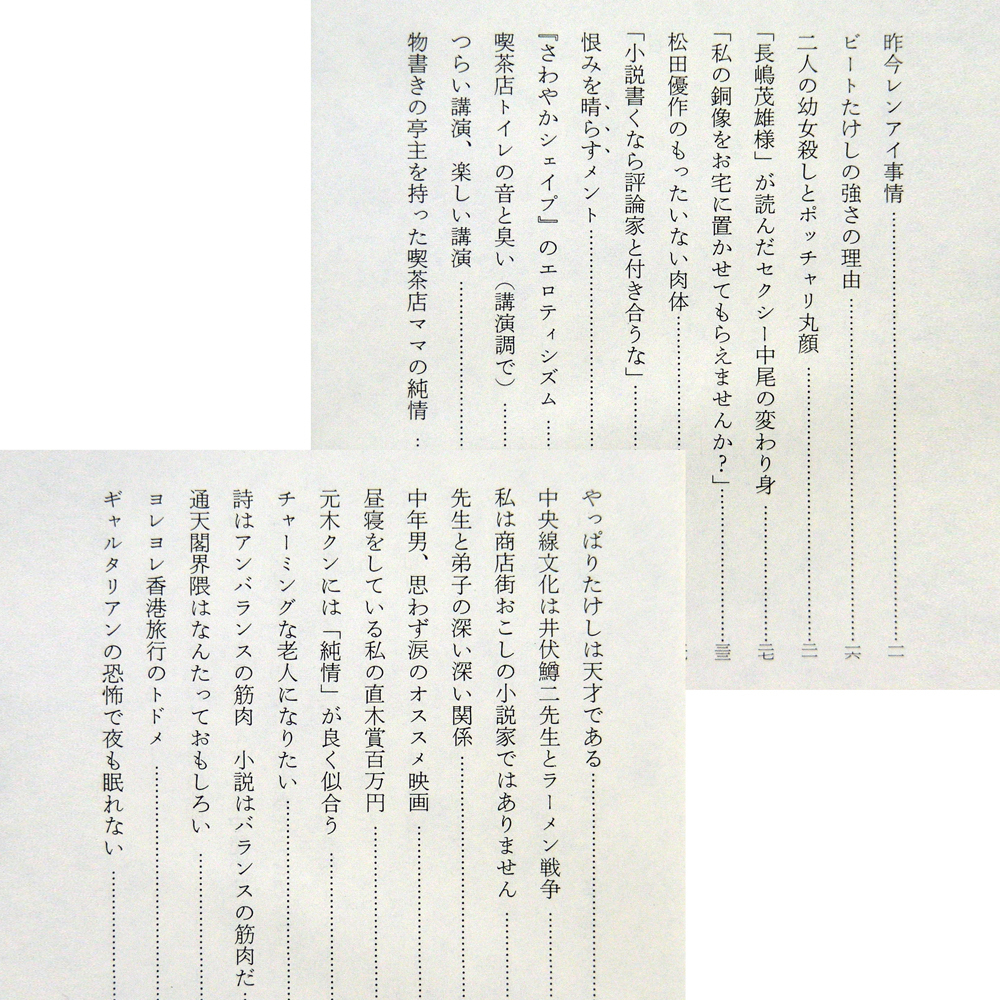 昨今レンアイ事情 一一
ビートたけしの強さの理由 一六
二人の幼女殺しとポッチャリ丸顔 二一
「長嶋茂雄様」が読んだセクシー中尾の変わり身 二七
「私の銅像をお宅に置かせてもらえませんか？」 三三
松田優作のもったいない肉体
「小説書くなら評論家と付き合うな」
恨みを晴らすメント
『さわやかシェイプ』のエロティシズム
喫茶店トイレの音と臭い（講演調で）
つらい講演、楽しい講演
物書きの亭主を持った喫茶店ママの純情
やっぱりたけしは天才である
中央線文化は井伏鱒二先生とラーメン戦争
私は商店街おこしの小説家ではありません
先生と弟子の深い深い関係
中年男、思わず涙のオススメ映画
昼寝をしている私の直木賞百万円
元木クンには「純情」が良く似合う
チャーミングな老人になりたい
詩はアンバランスの筋肉　小説はバランスの筋肉だ
通天閣界隈はなんたっておもしろい
ヨレヨレ香港旅行のトドメ
ギャルタリアンの恐怖で夜も眠れない